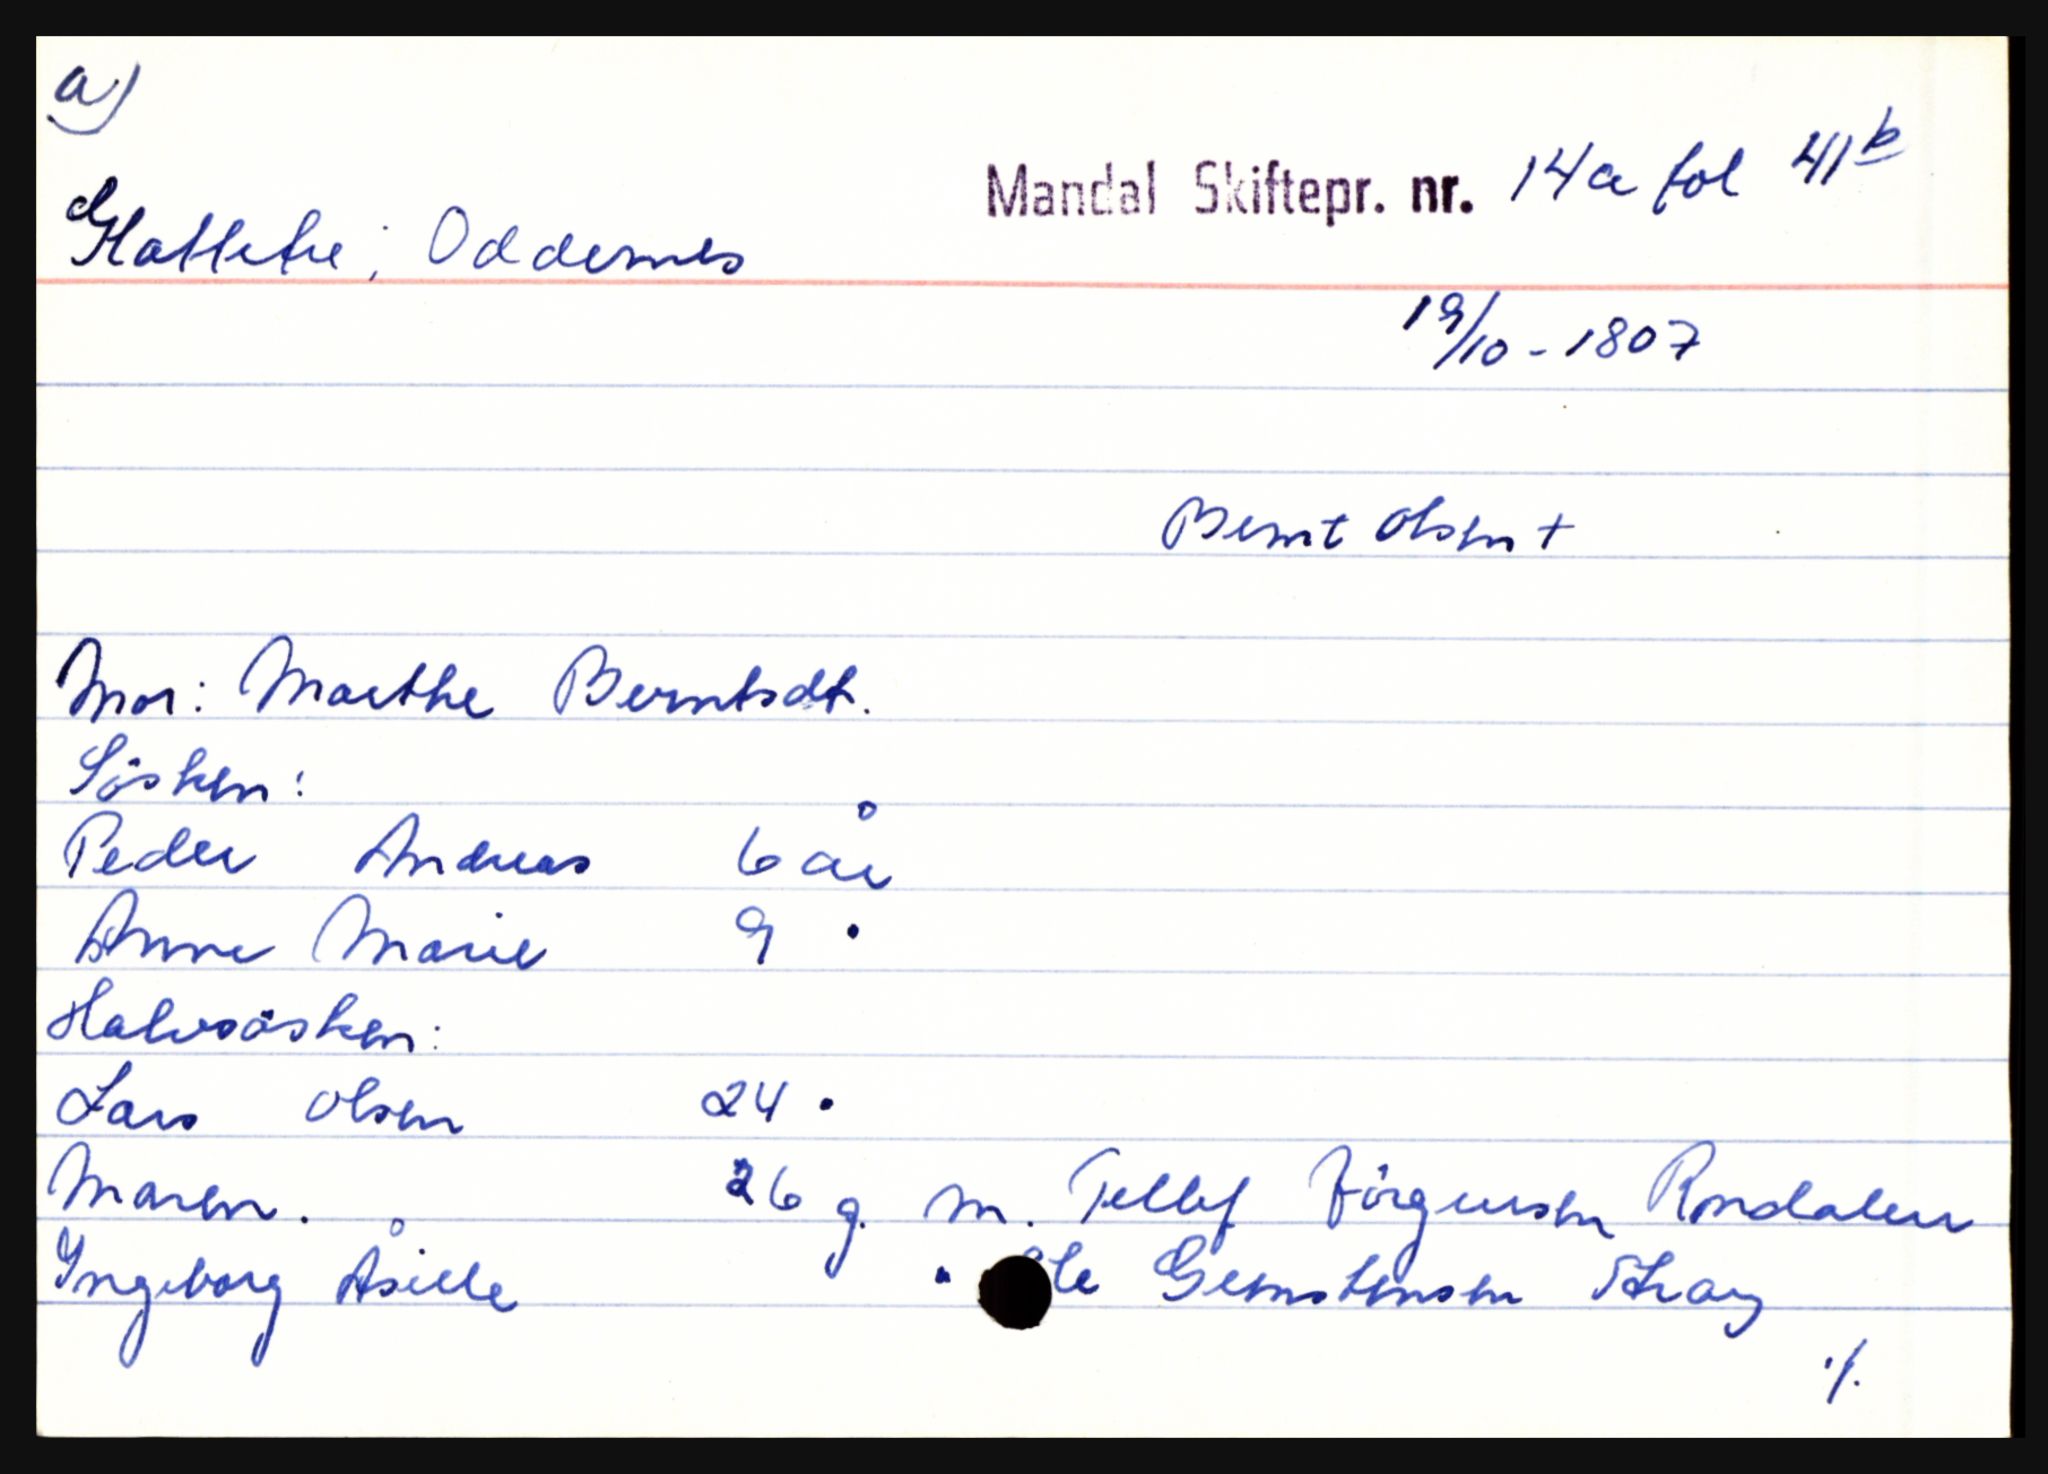 a)
Mandal Skiftepr. nr. 14a fol 41b
Slattebre; Oddernes
19/10 - 1807
Bernt Olsen +
Mor: Marthe Berntsdt.
Sösken:
Peder Andreas 6 år
Anne Marie 9 "
Halvsösken:
Lars Olsen 24 "
Maren. 26 g. m. Tellef Jörgensen Rondalen
Ingeborg Åsille " Ole Gernstensen Stray
./.